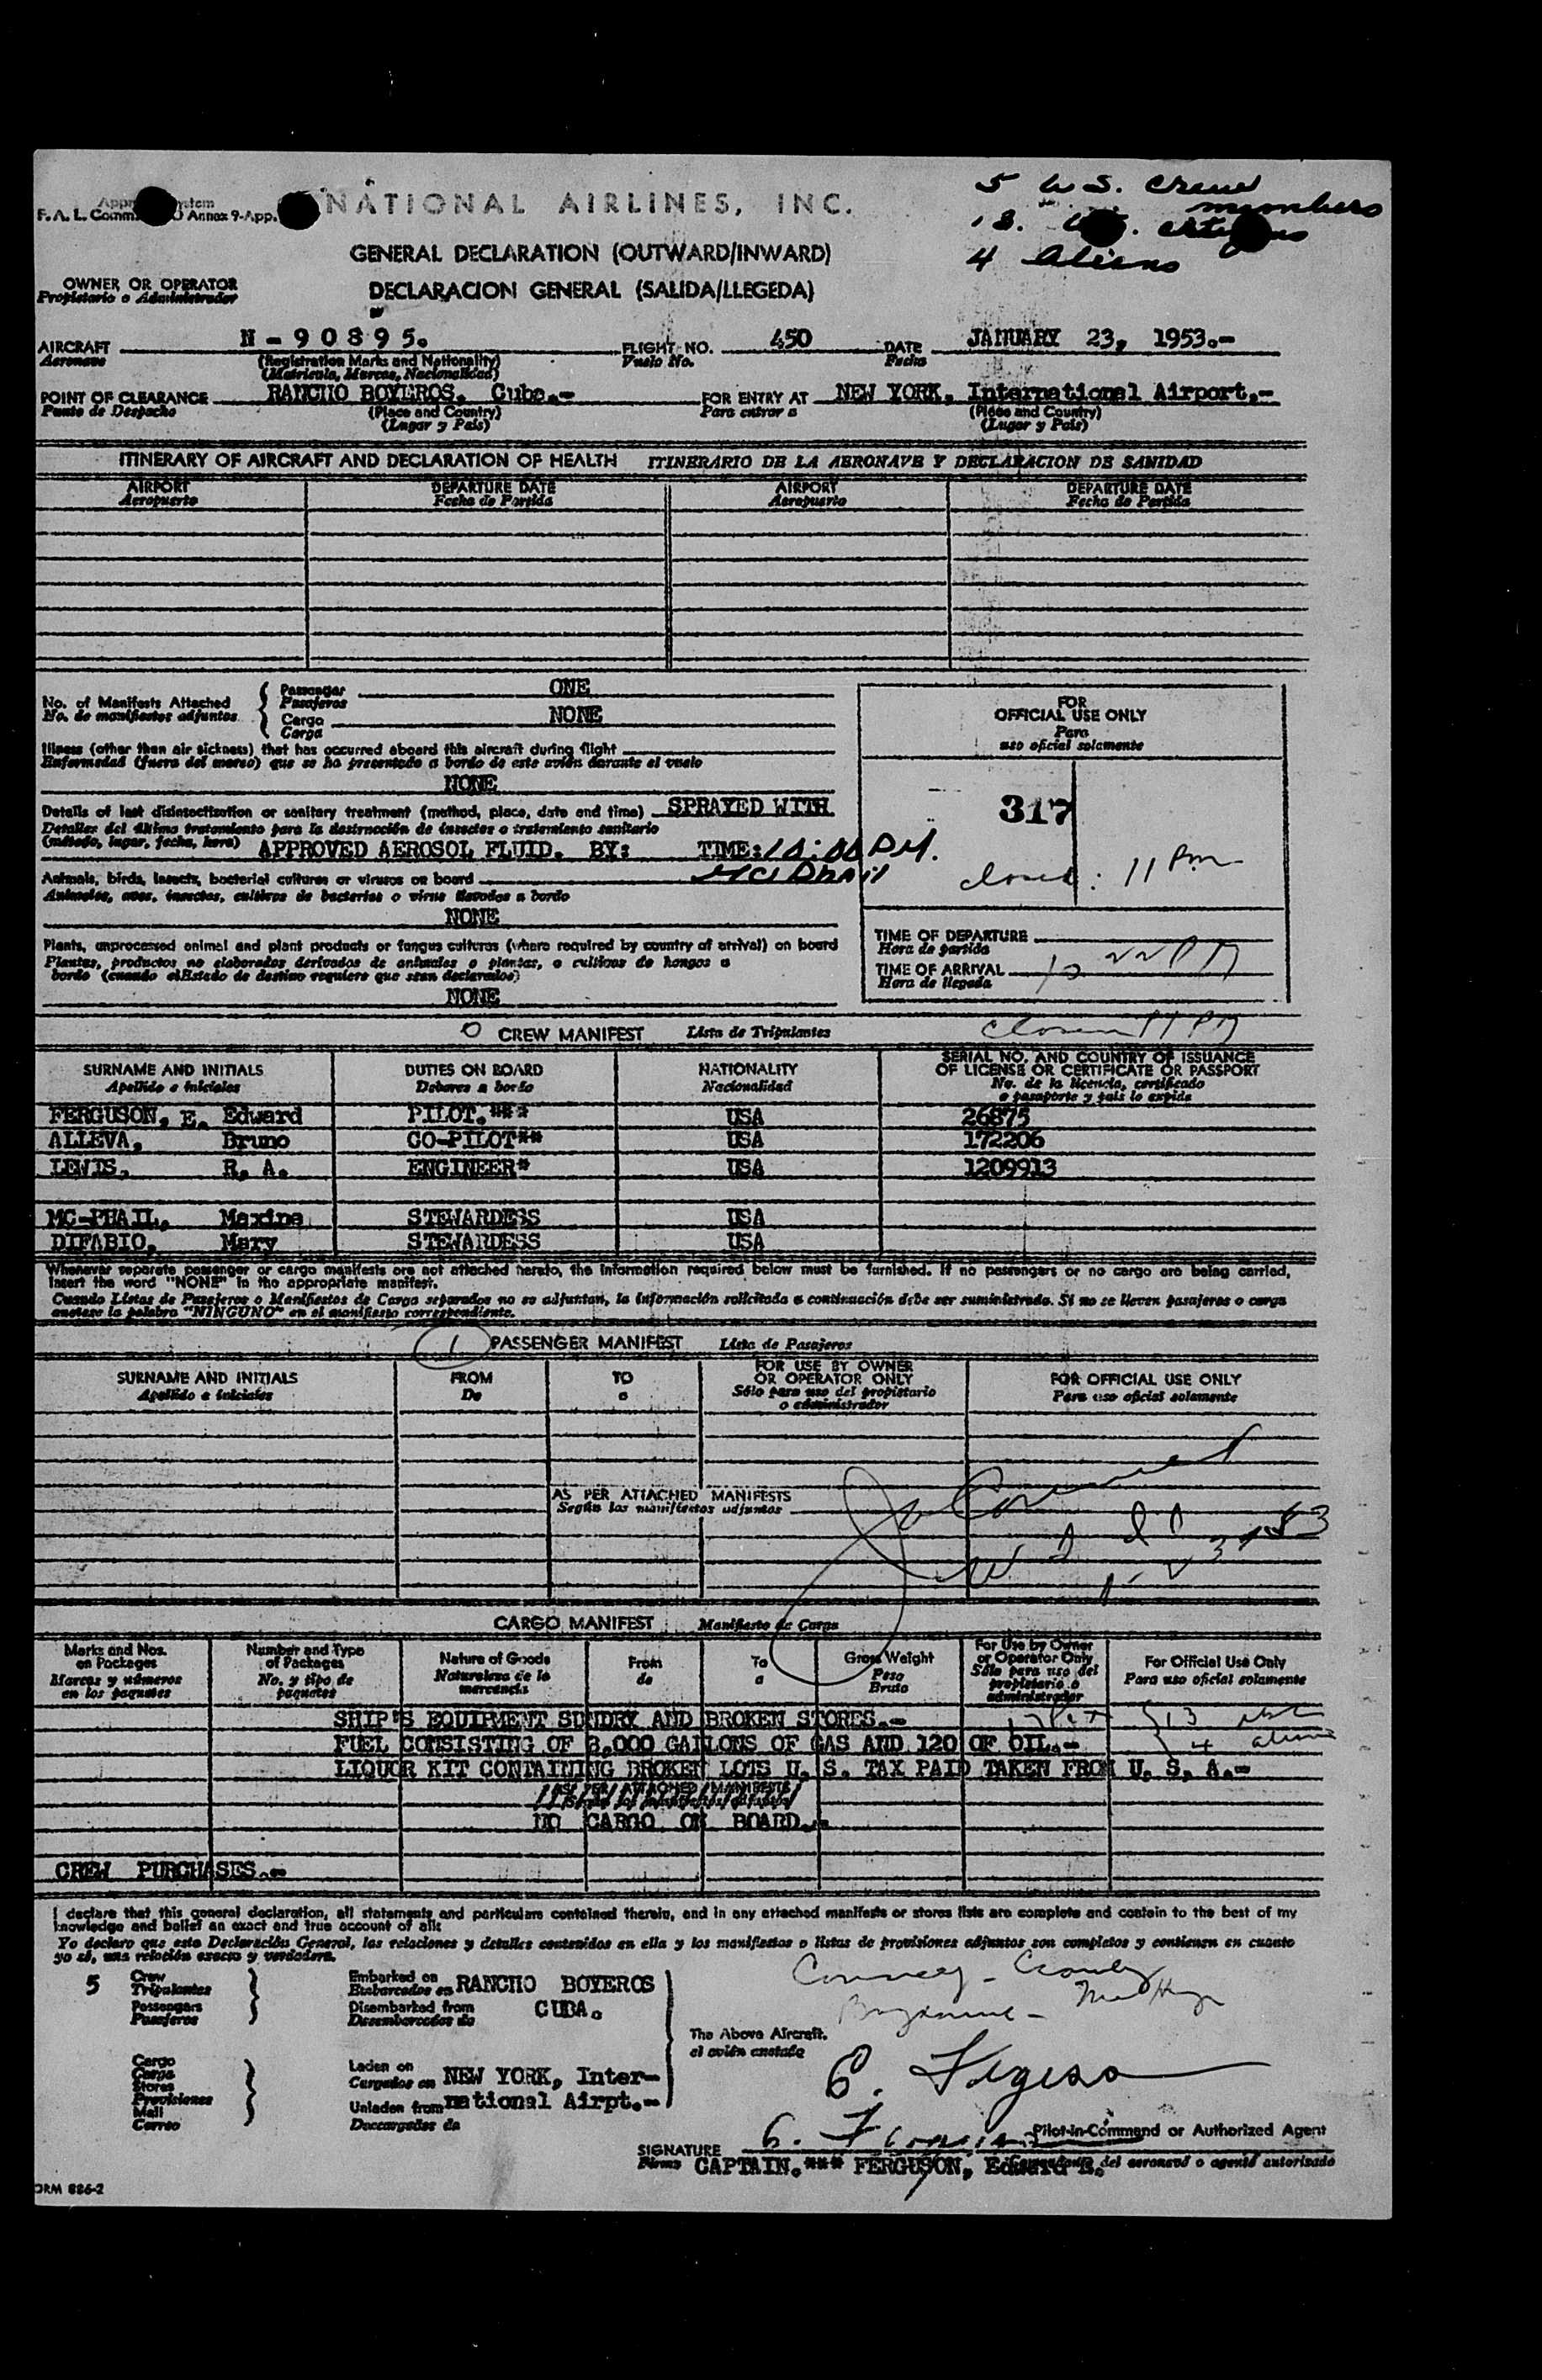 NATIONAL AIRLINES, INC.
5 U.S. Crew members
4 Aliens
F. A. L. Annex 9-App.
GENERAL DECLARATION (OUTWARD/INWARD)
DECLARACION GENERAL (SALIDA/LLEGEDA)
OWNER OR OPERATOR
Propietario o Administrador
AIRCRAFT N - 90895. FLIGHT NO. 450 DATE JANUARY 23, 1953.-
Aeronave (Registration Marks and Nationality) Vuelo No. Fecha
(Matricula, Marcas, Nacionalidad)
POINT OF CLEARANCE RANCHO BOYEROS, Cuba.- FOR ENTRY AT NEW YORK, International Airport.-
Punto de Despacho (Place and Country) Para entrar a (Place and Country)
(Lugar y País) (Lugar y País)
ITINERARY OF AIRCRAFT AND DECLARATION OF HEALTH ITINERARIO DE LA AERONAVE Y DECLARACION DE SANIDAD
AIRPORT DEPARTURE DATE AIRPORT DEPARTURE DATE
Aeropuerto Fecha de Partida Aeropuerto Fecha de Partida
No. of Manifests Attached Passenger ONE
No. de manifiestos adjuntos Pasajeros
Cargo NONE
Carga
Illness (other than air sickness) that has occurred aboard this aircraft during flight
Enfermedad (fuera del mareo) que se ha presentado a bordo de este avión durante el vuelo
NONE
Details of last disinsectization or sanitary treatment (method, place, date and time) SPRAYED WITH
Detalles del último tratamiento para la destrucción de insectos o tratamiento sanitario
(método, lugar, fecha, hora) APPROVED AEROSOL FLUID. BY: TIME: 10:00 PM.
McPhail
Animals, birds, insects, bacterial cultures or viruses on board
Animales, aves, insectos, cultivos de bacterias o virus llevados a bordo
NONE
Plants, unprocessed animal and plant products or fungus cultures (where required by country of arrival) on board
Plantas, productos no elaborados derivados de animales o plantas, o cultivos de hongos a
bordo (cuando el Estado de destino requiere que sean declarados)
NONE
FOR
OFFICIAL USE ONLY
Para
uso oficial solamente
317
closed: 11 Pm
TIME OF DEPARTURE
Hora de partida
TIME OF ARRIVAL 10 22 PM
Hora de llegada
CREW MANIFEST Lista de Tripulantes
SURNAME AND INITIALS DUTIES ON BOARD NATIONALITY SERIAL NO. AND COUNTRY OF ISSUANCE
OF LICENSE OR CERTIFICATE OR PASSPORT
Apellido e iniciales Deberes a bordo Nacionalidad No. de la licencia, certificado
o pasaporte y país lo expide
FERGUSON, E. Edward PILOT.*** USA 26875
ALLEVA, Bruno CO-PILOT** USA 172206
LEWIS, R. A. ENGINEER* USA 1209913
MC-PHAIL, Maxine STEWARDESS USA
DIFABIO, Mary STEWARDESS USA
Whenever separate passenger or cargo manifests are not attached hereto, the information required below must be furnished. If no passengers or no cargo are being carried,
insert the word "NONE" in the appropriate manifest.
Cuando Listas de Pasajeros o Manifiestos de Carga separados no se adjuntan, la información solicitada a continuación debe ser suministrada. Si no se lleven pasajeros o carga
anotese la palabra "NINGUNO" en el manifiesto correspondiente.
1 PASSENGER MANIFEST Lista de Pasajeros
SURNAME AND INITIALS FROM TO FOR USE BY OWNER FOR OFFICIAL USE ONLY
OR OPERATOR ONLY
Apellido e iniciales De a Sólo para uso del propietario Para uso oficial solamente
o administrador
AS PER ATTACHED MANIFESTS
Según los manifiestos adjuntos
CARGO MANIFEST Manifiesto de Carga
Marks and Nos. Number and Type Nature of Goods From To Gross Weight For Use by Owner For Official Use Only
on Packages of Packages or Operator Only
Marcas y números No. y tipo de Naturaleza de la de a Peso Sólo para uso del Para uso oficial solamente
en los paquetes paquetes mercancía Bruto propietario o
administrador
SHIP'S EQUIPMENT SUNDRY AND BROKEN STORES.-
FUEL CONSISTING OF 3,000 GALLONS OF GAS AND 120 OF OIL.-
LIQUOR KIT CONTAINING BROKEN LOTS U. S. TAX PAID TAKEN FROM U. S. A.-
AS PER ATTACHED MANIFESTS
Según los manifiestos adjuntos
NO CARGO ON BOARD.-
CREW PURCHASES.-
I declare that this general declaration, all statements and particulars contained therein, and in any attached manifests or stores lists are complete and contain to the best of my
knowledge and belief an exact and true account of all:
Yo declaro que esta Declaración General, las relaciones y detalles contenidos en ella y los manifiestos o listas de provisiones adjuntos son completos y contienen en cuanto
yo sé, una relación exacta y verdadera.
5 Crew Embarked on RANCHO BOYEROS
Tripulantes Embarcados en
Passengers Disembarked from CUBA.
Pasajeros Desembarcados de
The Above Aircraft.
el avión anotado
Cargo Laden on NEW YORK, Inter-
Carga Cargados en
Stores
Provisiones Unladen from national Airpt.-
Mail Descargados de
Correo
Pilot-in-Command or Authorized Agent
SIGNATURE
Firma CAPTAIN.*** FERGUSON, Edward E. del aeronave o agente autorizado
ORM 886-2